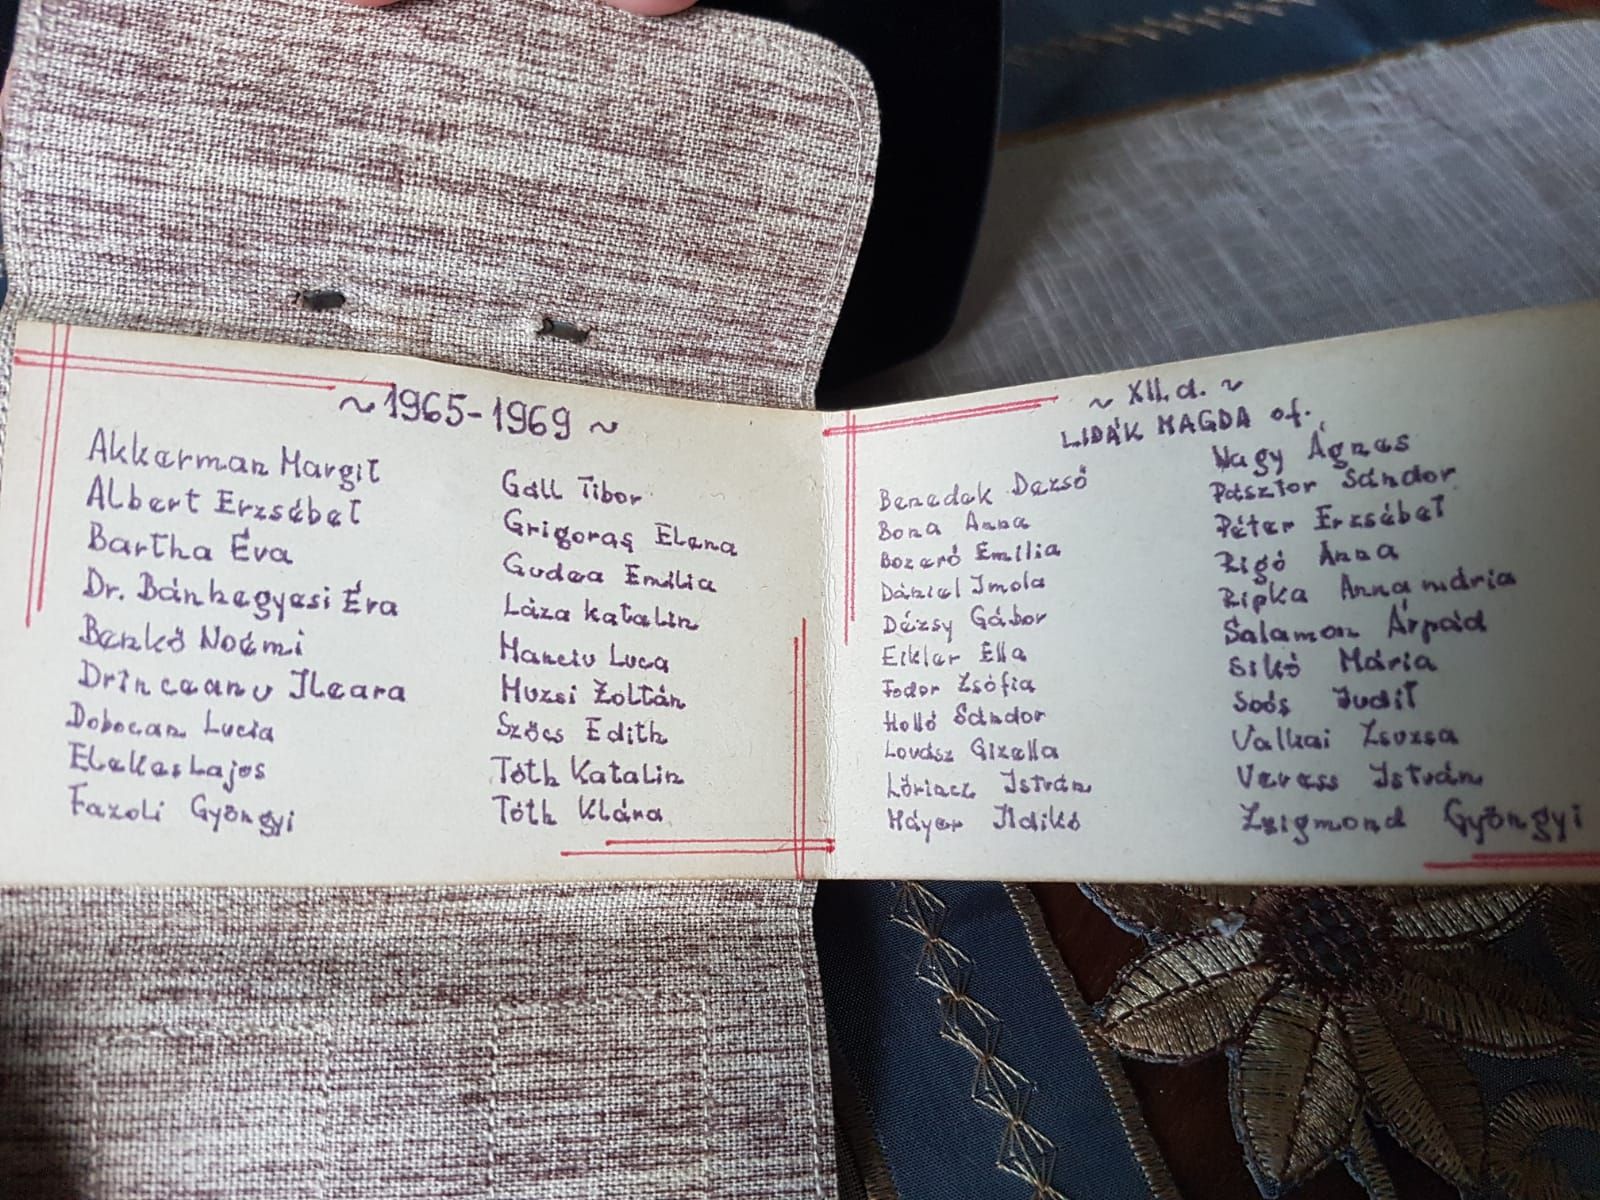 ~1965-1969~
Akkerman Margit
Albert Erzsébet
Bartha Éva
Dr. Bánhegyesi Éva
Benkő Noémi
Drînceanu Ileara
Dobocan Lucia
Elekes Lajos
Fazoli Gyöngyi
Gáll Tibor
Grigoraş Elena
Gudea Emilia
Láza Katalin
Manciu Luca
Muzsi Zoltán
Szőcs Edith
Tóth Katalin
Tóth Klára
~ XII. d. ~
LIDÁK MAGDA of.
Benedek Dezső
Bona Anna
Bozeró Emilia
Dániel Imola
Dézsy Gábor
Eikler Ella
Fodor Zsófia
Holló Sándor
Lovász Gizella
Lőrincz István
Máyer Ildikó
Nagy Ágnes
Pásztor Sándor
Péter Erzsébet
Rigó Anna
Ripka Annamária
Salamon Árpád
Sikó Mária
Soós Judit
Valkai Zsuzsa
Veress István
Zsigmond Gyöngyi